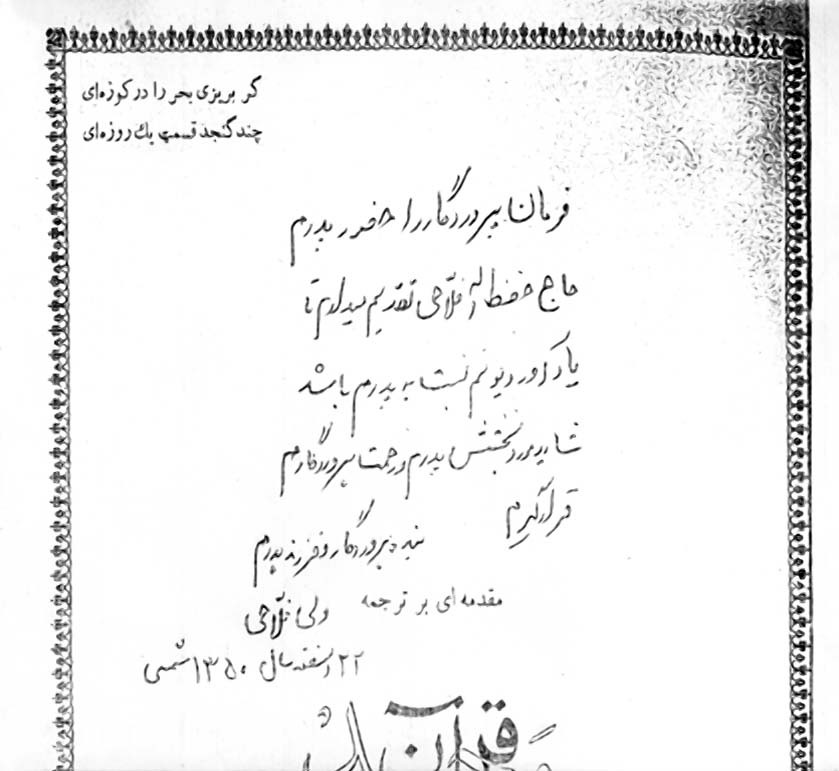 گر بریزی بحر را در کوزه‌ای
چند گنجد قسمت یك روزه‌ای
فرمان پروردگار را حضور پدرم
حاج حفظ اله فلّاحی تقدیم میدارم تا
یادآور دیونم نسبت به پدرم باشد
شاید مورد بخشش پدرم و رحمت پروردگارم
قرار گیرم
بنده پروردگار و فرزند پدرم
مقدمه ای بر ترجمه
ولی فلّاحی
۲۲ اسفند سال ۱۳۵۰ شمسی
قرآن